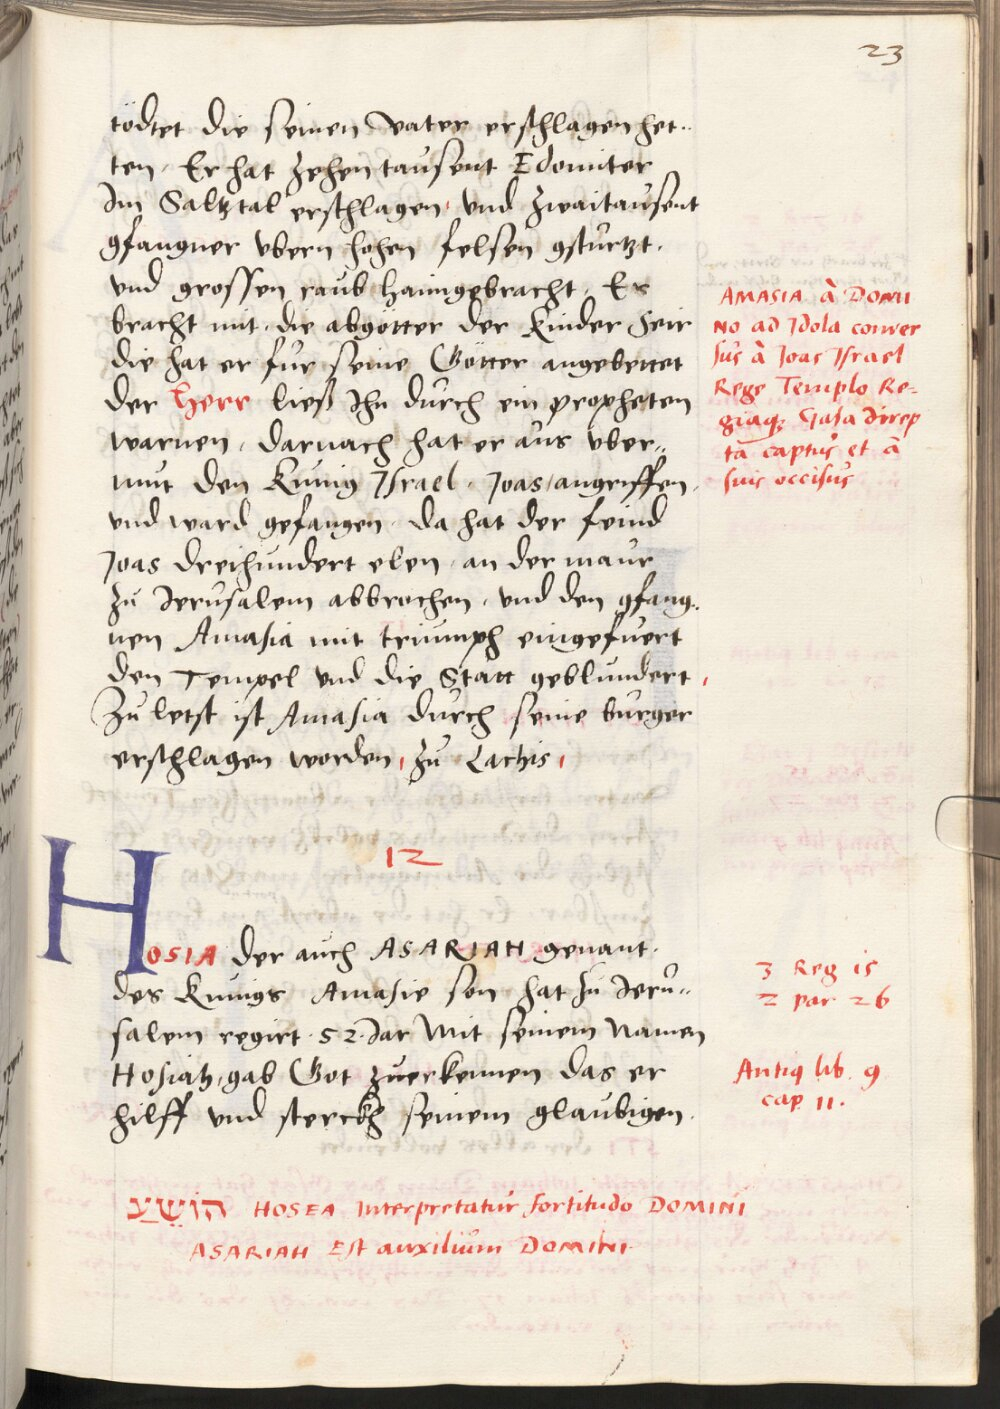 23
tödtet die seinen vater erschlagen het-
ten. Er hat zehen tausent Edomiter
Im Saltztal erschlagen, und zwaitausent
gfangner vbern hohen felsen gsturtzt.
vnd grossen raub haimgebracht. Er
bracht mit, die abgötter der Kinder Seir
die hat er fur seine Götter angebettet
der Herr ließ Ihn durch ein propheten
warnen, darnach hat er aus vber-
mut den Kunig Israel, Joas, angriffen,
vnd ward gefangen, da hat der feind
Joas dreihundert elen, an der maur
zu Jerusalem abbrochen, vnd den gfang-
nen Amasia mit triumph eingefuert
den Tempel vnd die Statt geblundert,
Zu letst ist Amasia durch seine burger
erschlagen worden, zu Lachis,
AMASIA à DOMI
NO ad Idola conver
sus à Joas Israel
Rege Templo Re-
giaq; Gasa direp
ta captus et à
suis occisus
12
HOSIA der auch ASARIAH genant.
des Kunigs Amasie son hat zu Jeru-
salem regirt. 52. Jar Mit seinem Namen
Hosiah, gab Got zuerkennen das er
hilff vnd sterckh seinem glaubigen.
3 Reg 15
2 par 26
Antiq lib. 9
cap 11.
הוֹשֵׁעַ HOSEA Interpretatur fortitudo DOMINI
ASARIAH Est auxilium DOMINI.